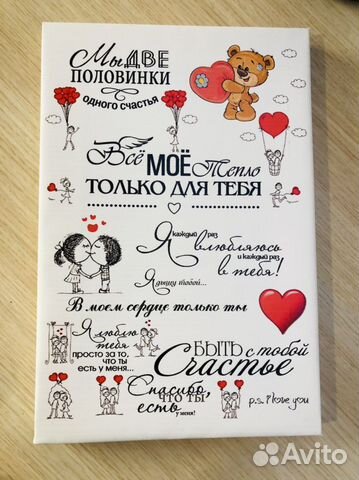 Мы ДВЕ
ПОЛОВИНКИ
одного счастья
Всё МОЁ Тепло
ТОЛЬКО ДЛЯ ТЕБЯ
Я каждый раз влюбляюсь
и каждый раз
в тебя!
Я дышу тобой...
В моем сердце только ты
Я люблю
тебя
просто за то,
что ты
есть у меня...
БЫТЬ с тобой
Счастье
Спасибо,
что ты
есть
у меня!
p.s. i love you
Avito